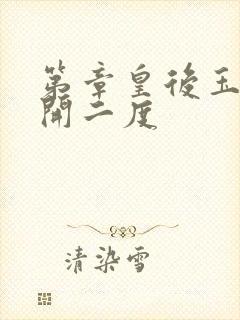 第章皇後玉
開二度
清染雪